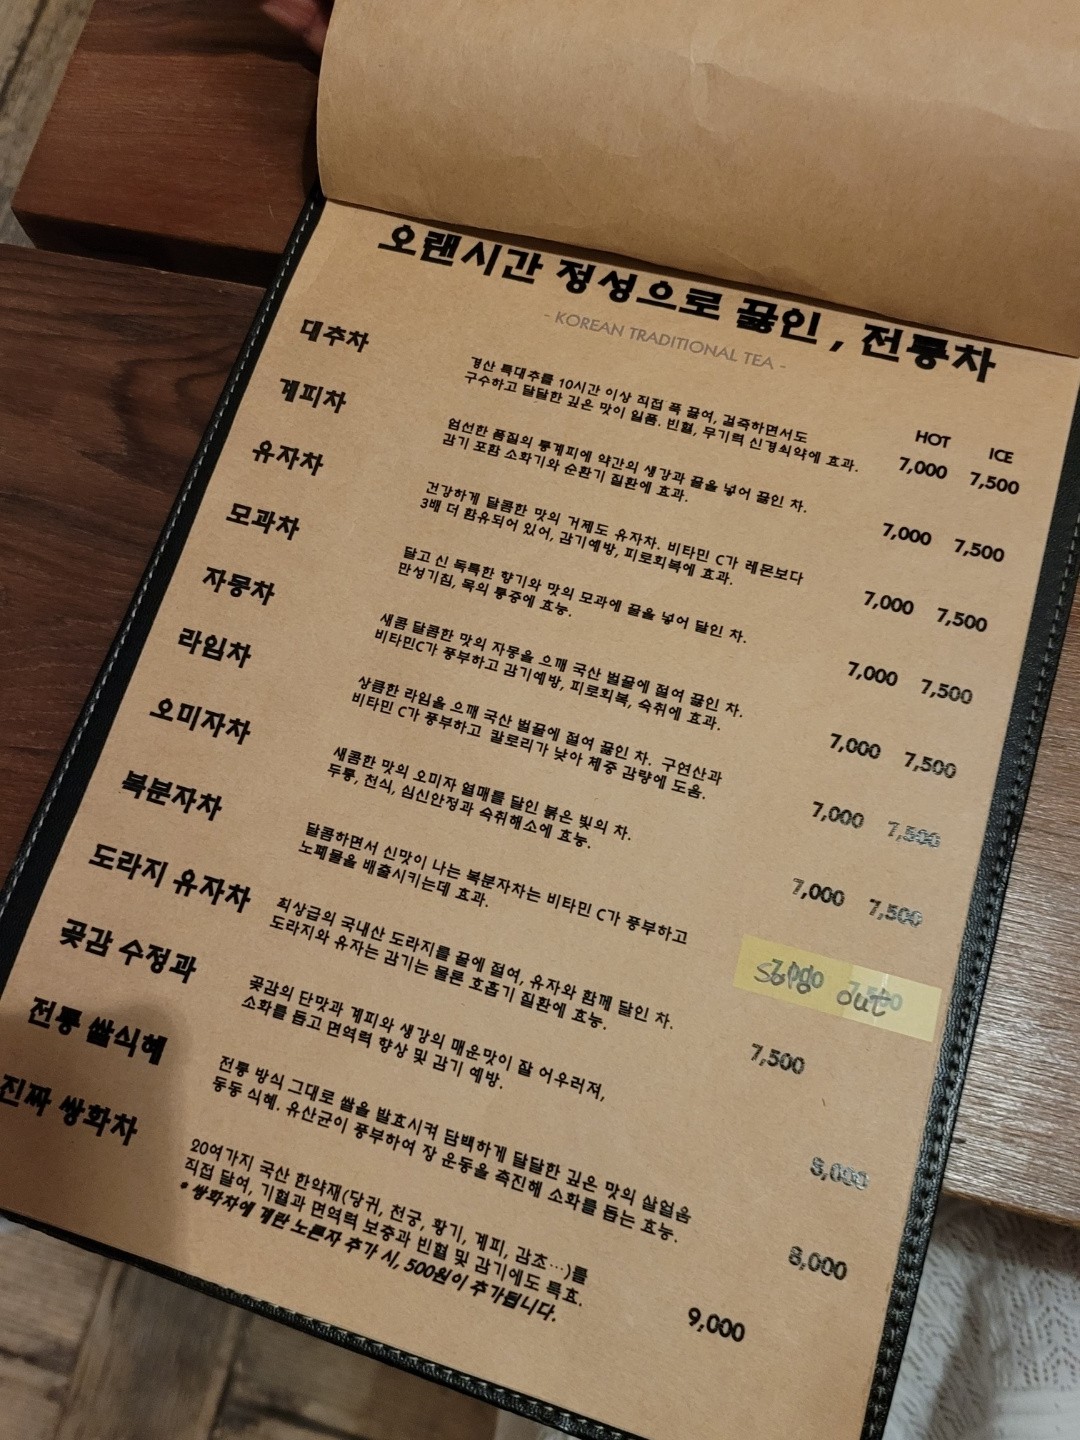 오랜시간 정성으로 끓인, 전통차
- KOREAN TRADITIONAL TEA -
HOT ICE
대추차
경산 특대추를 10시간 이상 직접 푹 끓여, 걸죽하면서도
구수하고 달달한 깊은 맛이 일품. 빈혈, 무기력 신경쇠약에 효과.
7,000 7,500
계피차
엄선한 품질의 통계피에 약간의 생강과 꿀을 넣어 끓인 차.
감기 포함 소화기와 순환기 질환에 효과.
7,000 7,500
유자차
건강하게 달콤한 맛의 거제도 유자차. 비타민 C가 레몬보다
3배 더 함유되어 있어, 감기예방, 피로회복에 효과.
7,000 7,500
모과차
달고 신 독특한 향기와 맛의 모과에 꿀을 넣어 달인 차.
만성기침, 목의 통증에 효능.
7,000 7,500
자몽차
새콤 달콤한 맛의 자몽을 으깨 국산 벌꿀에 절여 끓인 차.
비타민C가 풍부하고 감기예방, 피로회복, 숙취에 효과.
7,000 7,500
라임차
상큼한 라임을 으깨 국산 벌꿀에 절여 끓인 차. 구연산과
비타민 C가 풍부하고 칼로리가 낮아 체중 감량에 도움.
7,000 7,500
오미자차
새콤한 맛의 오미자 열매를 달인 붉은 빛의 차.
두통, 천식, 심신안정과 숙취해소에 효능.
7,000 7,500
복분자차
달콤하면서 신맛이 나는 복분자차는 비타민 C가 풍부하고
노폐물을 배출시키는데 효과.
7,500
out
도라지 유자차
최상급의 국내산 도라지를 꿀에 절여, 유자와 함께 달인 차.
도라지와 유자는 감기는 물론 호흡기 질환에 효능.
7,500
곶감 수정과
곶감의 단맛과 계피와 생강의 매운맛이 잘 어우러져,
소화를 돕고 면역력 향상 및 감기 예방.
8,000
전통 쌀식혜
전통 방식 그대로 쌀을 발효시켜 담백하게 달달한 깊은 맛의 살얼음
동동 식혜. 유산균이 풍부하여 장 운동을 촉진해 소화를 돕는 효능.
8,000
진짜 쌍화차
20여가지 국산 한약재(당귀, 천궁, 황기, 계피, 감초…)를
직접 달여, 기혈과 면역력 보충과 빈혈 및 감기에도 특효.
* 쌍화차에 계란 노른자 추가 시, 500원이 추가됩니다.
9,000